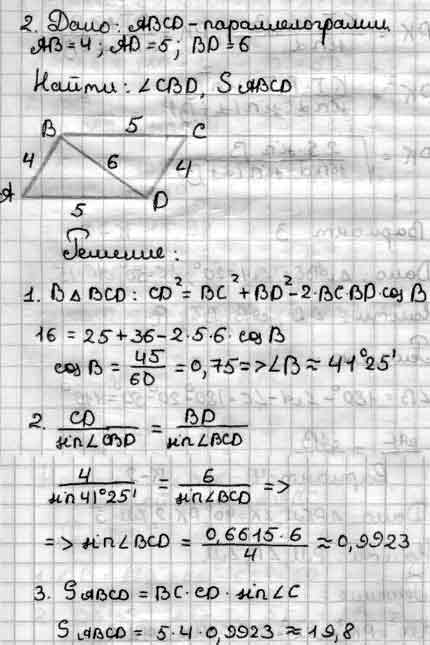 2. Дано: ABCD - параллелограмм
AB=4; AD=5; BD=6
Найти: ∠CBD, S ABCD
B 5 C
4 6 4
A 5 D
Решение:
1. В Δ BCD: CD² = BC² + BD² - 2·BC·BD·cos B
16 = 25 + 36 - 2·5·6·cos B
cos B = 45/60 = 0,75 => ∠B ≈ 41°25'
2. CD/sin∠CBD = BD/sin∠BCD
4/sin 41°25' = 6/sin∠BCD =>
=> sin∠BCD = 0,6615·6/4 ≈ 0,9923
3. S ABCD = BC·CD·sin∠C
S ABCD = 5·4·0,9923 ≈ 19,8